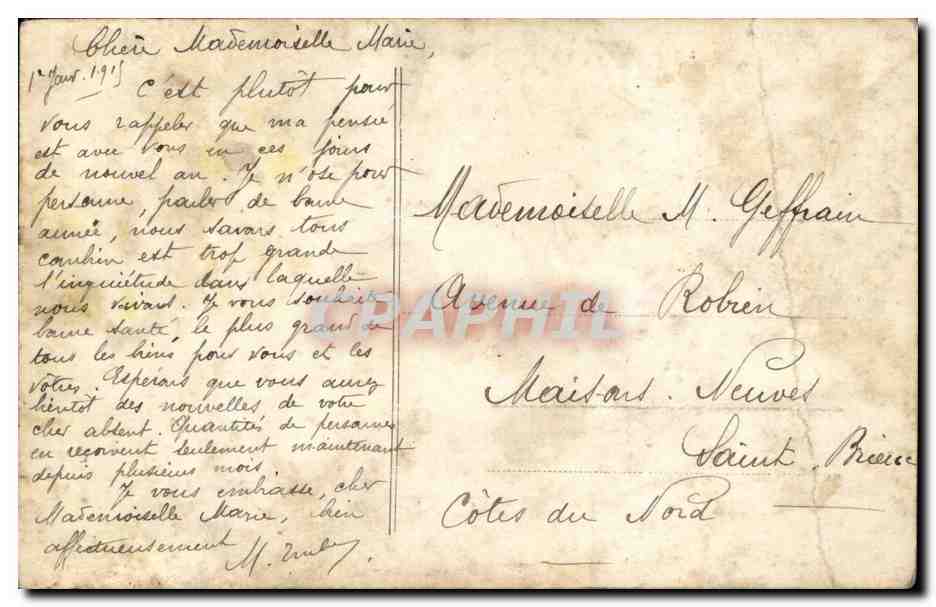 Chère Mademoiselle Marie,
1er Janv. 1915
C'est plutôt pour
vous rappeler que ma pensée
est avec vous en ces jours
de nouvel an. Je n'ose pour
personne, parler de bonne
année, nous savons tous
combien est trop grande
l'inquiétude dans laquelle
nous vivons. Je vous souhaite
bonne santé, le plus grand de
tous les biens pour vous et les
vôtres. Espérons que vous aurez
bientôt des nouvelles de votre
cher absent. Quantités de personnes
en reçoivent seulement maintenant
depuis plusieurs mois.
Je vous embrasse, cher
Mademoiselle Marie, bien
affectueusement
M.
Mademoiselle M. Geffrain
Avenue de Robien
Maisons. Neuves
Saint. Brieuc
Côtes du Nord
CPARAMA CPAPHIL